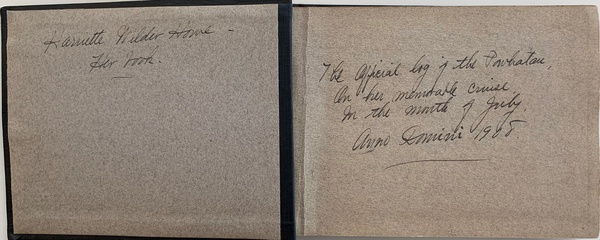 Harriette Wilder Howe -
Her book.
The official log of the Powhatan,
On her memorable cruise
In the month of July.
Anno Domini 1908